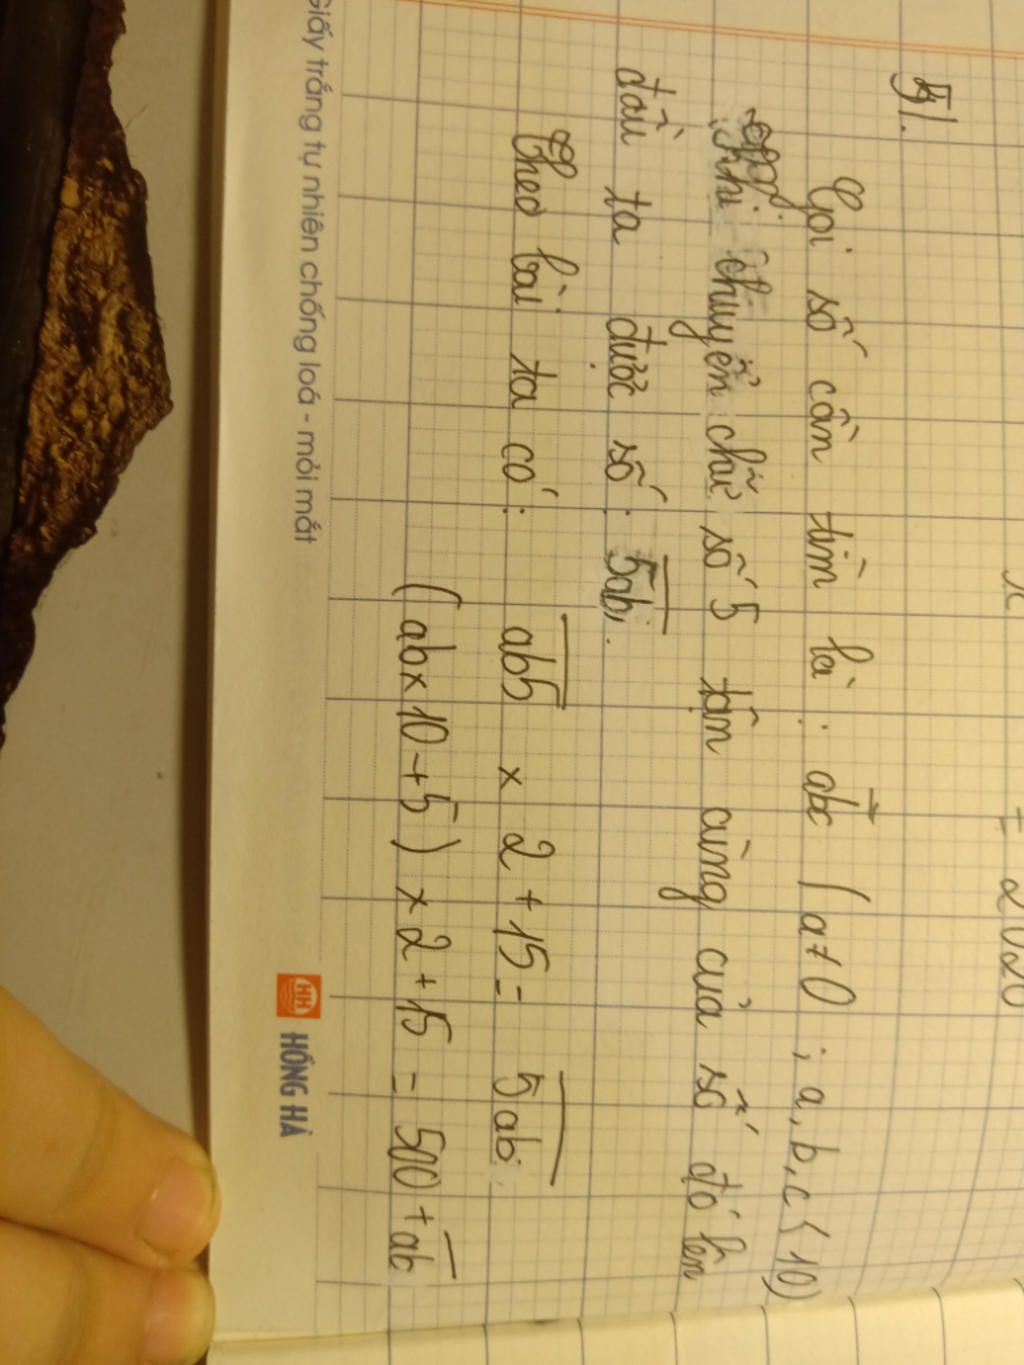 = 2020
51.
Gọi số cần tìm là : abc ( a≠0 ; a, b, c < 10)
Khi chuyển chữ số 5 tận cùng của số đó lên
đầu ta được số : 5ab.
Theo bài ta có : ab5 × 2 + 15 = 5ab.
(ab × 10 + 5) × 2 + 15 = 500 + ab
Giấy trắng tự nhiên chống loá - mỏi mắt
HH HỒNG HÀ